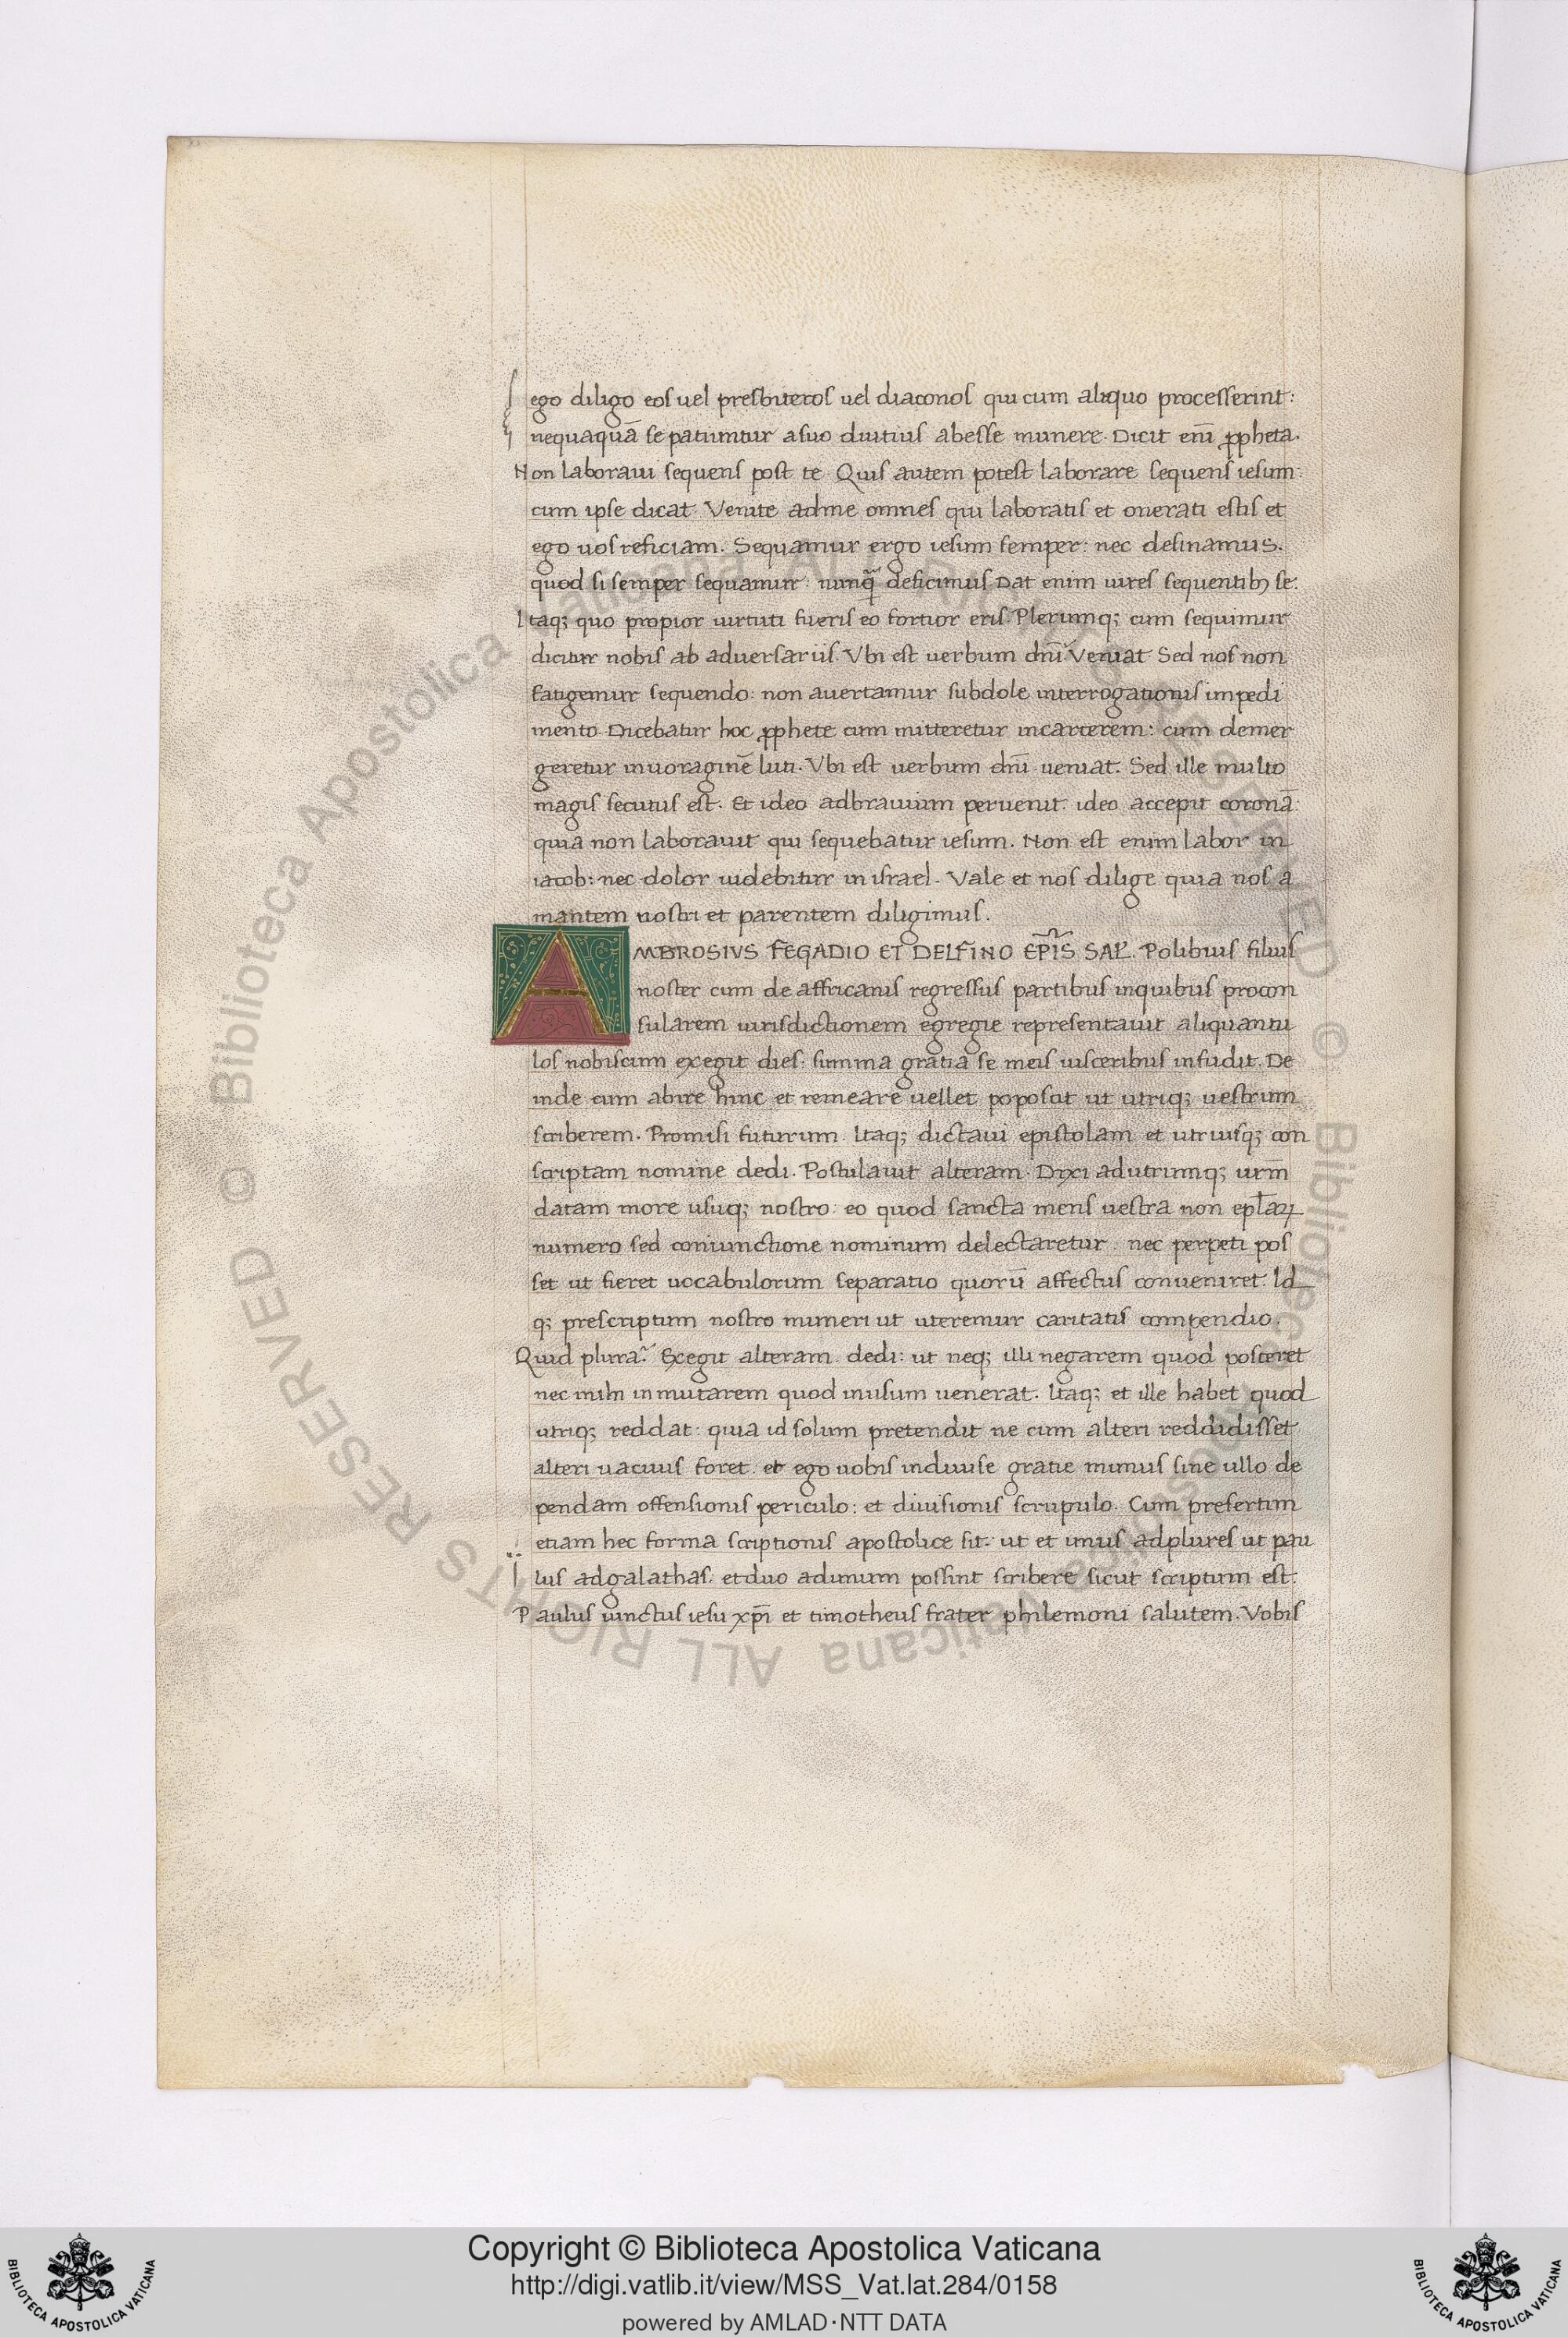 ego diligo eos uel presbiteros uel diaconos qui cum aliquo processerint:
nequaquā se patiuntur a suo diutius abesse munere. Dicit eni̅ ꝓpheta.
Non laboraui sequens post te. Quis autem potest laborare sequens iesum:
cum ipse dicat. Venite adme omnes qui laboratis et onerati estis et
ego uos reficiam. Sequamur ergo iesum semper: nec desinamus.
quod si semper sequamur: nunq̃ deficimus. Dat enim uires sequentibꝫ se.
Itaq; quo propior uirtuti fueris eo fortior eris. Plerumq; cum sequimur
dicitur nobis ab aduersariis. Vbi est uerbum dn̅i? Veniat. Sed nos non
fatigemur sequendo: non auertamur subdole interrogationis impedi
mento. Dicebatur hoc ꝓphete cum mitteretur incarcerem: cum demer
geretur inuoraginē luti. Vbi est uerbum dn̅i ueniat. Sed ille multo
magis secutus est. Et ideo adbrauium peruenit. ideo accepit coronā:
quia non laborauit qui sequebatur iesum. Non est enim labor in
iacob: nec dolor uidebitur in israel. Vale et nos dilige quia nos a
mantem nostri et parentem diligimus.
AMBROSIVS FEGADIO ET DELFINO EP̅IS SAL̅. Polibius filius
noster cum de affricanis regressus partibus inquibus procon
sularem iurisdictionem egregie representauit aliquantu
los nobiscum exegit dies. summa gratia se meis uisceribus infudit. De
inde cum abire hinc et remeare uellet poposcit ut utriq; uestrum
scriberem. Promisi futurum. Itaq; dictaui epistolam et utriusq; con
scriptam nomine dedi. Postulauit alteram. Dixi adutrumq; urm̅
datam more usuq; nostro: eo quod sancta mens uestra non epl̅aꝝ
numero sed coniunctione nominum delectaretur. nec perpeti pos
set ut fieret uocabulorum separatio quorū affectus conueniret. Id
q; prescriptum nostro muneri ut uteremur caritatis compendio.
Quid plura? Exegit alteram. dedi: ut neq; illi negarem quod posceret
nec mihi inmutarem quod inusum uenerat. Itaq; et ille habet quod
utriq; reddat: quia id solum pretendit ne cum alteri reddidisset
alteri uacuus foret. et ego uobis indiuise gratie munus sine ullo de
pendam offensionis periculo: et diuisionis scrupulo. Cum presertim
etiam hec forma scriptionis apostolice sit: ut et unus adplures ut pau
lus adgalathas: et duo adunum possint scribere sicut scriptum est.
Paulus uinctus iesu xp̅i et timotheus frater philemoni salutem. Vobis
© Biblioteca Apostolica Vaticana ALL RIGHTS RESERVED
© Biblioteca Apostolica Vaticana ALL RIGHTS RESERVED
Copyright © Biblioteca Apostolica Vaticana
http://digi.vatlib.it/view/MSS_Vat.lat.284/0158
powered by AMLAD·NTT DATA
BIBLIOTECA APOSTOLICA VATICANA
BIBLIOTECA APOSTOLICA VATICANA